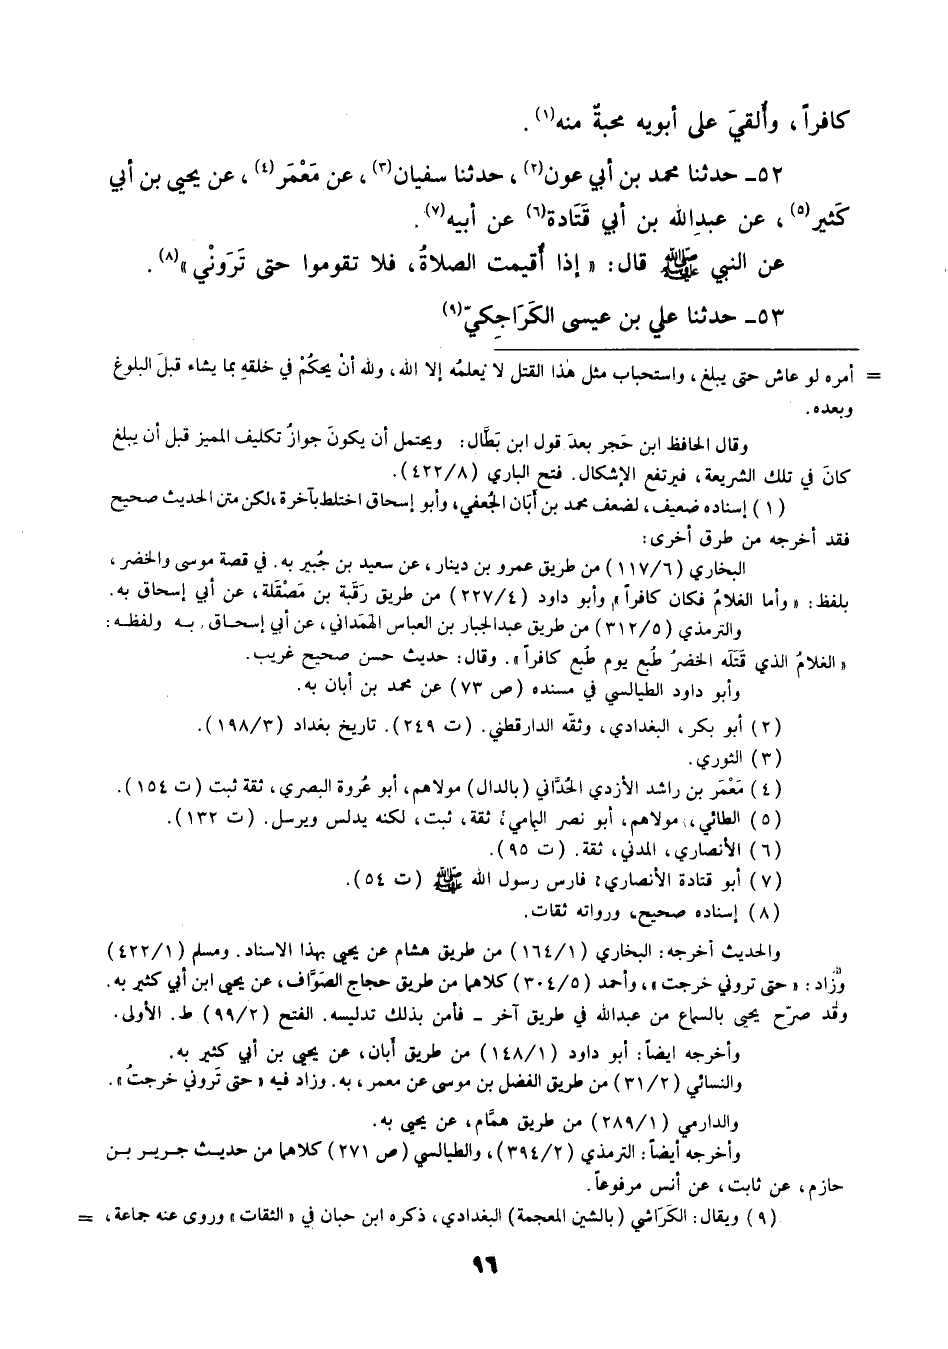 كافراً، وأُلقيَ على أبويه محبةٌ منه(١).
٥٢ـ حدثنا محمد بن أبي عون(٢)، حدثنا سفيان(٣)، عن مَعْمَر(٤)، عن يحيى بن أبي
كَثير(٥)، عن عبدِالله بن أبي قَتَادة(٦) عن أبيه(٧).
عن النبي ﷺ قال: « إذا أُقيمت الصلاةُ، فلا تقوموا حتى تَرَونْي »(٨).
٥٣ـ حدثنا علي بن عيسى الكَرَاجِكيّ(٩)
= أمره لو عاش حتى يبلغ، واستحباب مثل هٰذا القتل لا يَعلمُه إلا الله، ولله أنْ يحكمْ في خلقهِ بما يشاء قبلَ البلوغ
وبعده.
وقال الحافظ ابن حَجر بعدَ قول ابن بَطَّال: ويحتمل أن يكونَ جوازُ تكليف المميز قبل أن يبلغ
كانَ في تلك الشريعة، فيرتفع الإشكال. فتح الباري (٤٢٢/٨).
(١) إسناده ضعيف، لضعف محمد بن أَبَان الجُعفي، وأبو إسحاق اختلط بآخرة، لكن متن الحديث صحيح
فقد أخرجه من طرق أخرى:
البخاري (١١٧/٦) من طريق عمرو بن دينار، عن سعيد بن جُبير به. في قصة موسى والخضر،
بلفظ: « وأما الغلامُ فكان كافراً »، وأبو داود (٢٢٧/٤) من طريق رَقَبة بن مَصْقَلة، عن أبي إسحاق به.
والترمذي (٣١٢/٥) من طريق عبدالجبار بن العباس الهَمَداني، عن أبي إسحاق، به ولفظه:
« الغلامُ الذي قَتَله الخضرُ طُبع يوم طُبع كافراً ». وقال: حديث حسن صحيح غريب.
وأبو داود الطيالسي في مسنده (ص ٧٣) عن محمد بن أبان به.
(٢) أبو بكر، البغدادي، وثقه الدارقطني. (ت ٢٤٩). تاريخ بغداد (١٩٨/٣).
(٣) الثوري.
(٤) مَعْمَر بن راشد الأزدي الحُدَّاني (بالدال) مولاهم، أبو عُروة البصري، ثقة ثبت (ت ١٥٤).
(٥) الطائي، مولاهم، أبو نصر اليمامي، ثقة، ثبت، لكنه يدلس ويرسل. (ت ١٣٢).
(٦) الأنصاري، المدني، ثقة. (ت ٩٥).
(٧) أبو قتادة الأنصاري، فارس رسول الله ﷺ (ت ٥٤).
(٨) إسناده صحيح، ورواته ثقات.
والحديث أخرجه: البخاري (١٦٤/١) من طريق هشام عن يحيى بهذا الاسناد. ومسلم (٤٢٢/١)
وزاد: « حتى تروني خرجت »، وأحمد (٣٠٤/٥) كلاهما من طريق حجاج الصَوَّاف، عن يحيى ابن أبي كثير به.
وقد صرّح يحيى بالسماع من عبدالله في طريق آخر ـ فأمن بذلك تدليسه. الفتح (٩٩/٢) ط. الأولى.
وأخرجه ايضاً: أبو داود (١٤٨/١) من طريق أَبان، عن يحيى بن أبي كثير به.
والنسائي (٣١/٢) من طريق الفضل بن موسى عن معمر، به. وزاد فيه « حتى تَروني خرجتُ ».
والدارمي (٢٨٩/١) من طريق همَّام، عن يحيى به.
وأخرجه أيضاً: الترمذي (٣٩٤/٢)، والطيالسي (ص ٢٧١) كلاهما من حديث جرير بن
حازم، عن ثابت، عن أنس مرفوعاً.
(٩) ويقال: الكَرَاشي (بالشين المعجمة) البغدادي، ذكره ابن حبان في « الثقات » وروى عنه جماعة، =
٩٦